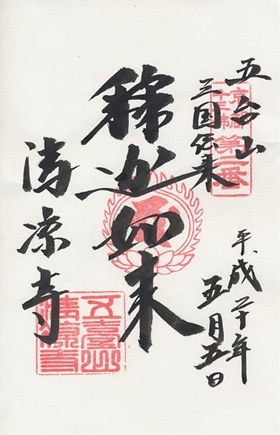 京都
第二番
五台山
三国伝来
釋迦如来
清凉寺
五臺山
清凉寺
平成二十年
五月五日